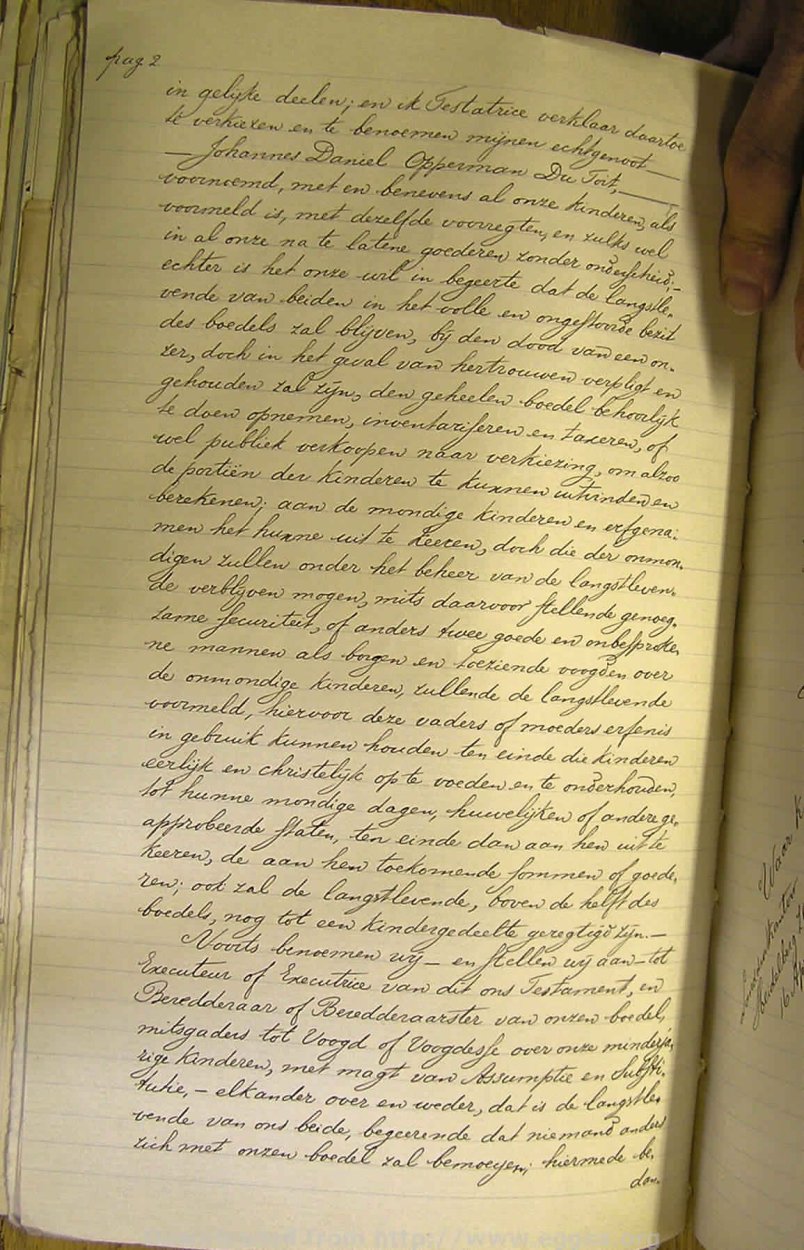 pag 2
in gelijke deelen; en ik Testatrice verklaar daartoe
te verkiezen en te benoemen mijnen echtgenoot —
— Johannes Daniel Opperman Du Toit, —
voornoemd, met en benevens al onze kinderen, als
voormeld is, met dezelfde voorregten, en zulks wel
in al onze na te latene goederen zonder onderscheid; —
echter is het onze wil in begeerte dat de langstle-
vende van beiden in het volle en ongestoorde bezit
des boedels zal blijven, bij den dood van een on-
zer, doch in het geval van hertrouwen verpligt en
gehouden zal zijn, den geheelen boedel behoorlijk
te doen opnemen, inventariseren en taxeren, of
wel publiek verkoopen naar verkiezing, om alzoo
de portiën der kinderen te kunnen uitvinden en
berekenen; aan de mondige kinderen en erfgena-
men het hunne uit te keeren, doch die der onmon-
digen zullen onder het beheer van de langstleven-
de verblijven mogen, mits daarvoor stellende genoeg-
zame securiteit, of anders twee goede en onbesproke-
ne mannen als borgen en toeziende voogden over
de onmondige kinderen, zullende de langstlevende
voormeld, hiervoor deze vaders of moeders erfenis
in gebruik kunnen houden ten einde die kinderen
eerlijk en christelijk op te voeden en te onderhouden,
tot hunne mondige dagen, huwelijken of andere ge-
approbeerde staten, ten einde dan aan hen uit te
keeren, de aan hen toekomende sommen of goede-
ren; ook zal de langstlevende, boven de helft des
boedels, nog tot een kindergedeelte geregtigd zijn. —
Voorts benoemen wij — en stellen wij aan — tot
Executeur of Executrice van dit ons Testament, en
Beredderaar of Beredderaarster van onzen boedel,
mitsgaders tot Voogd of Voogdesse over onze minderja-
rige kinderen, met magt van Assumptie en Substi-
tutie, — elkander over en weder, dat is de langstle-
vende van ons beide, begeerende dat niemand anders
zich met onzen boedel zal bemoeyen; hiermede be-
dan-
Waar
Heidelberg
16 Ap